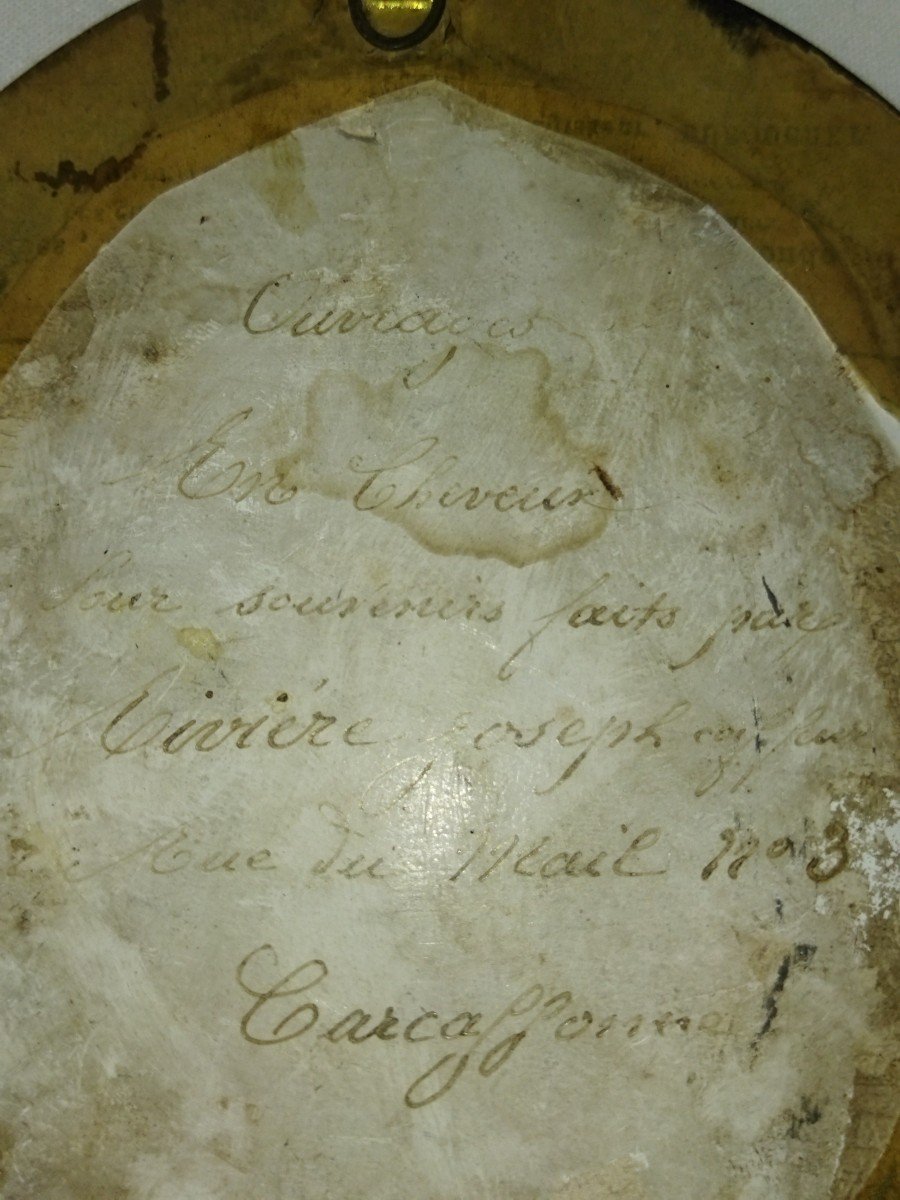 Ouvrages
En Cheveux
Pour souvenirs faits par
Rivière Joseph coiffeur
Rue du Mail Nº 3
Carcassonne